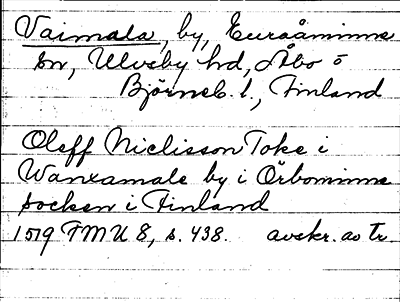 Vaimala, by, Euraåminne
sn, Ulvsby hd, Åbo o
Björneb. l., Finland
Oleff Niclisson Toke i
Wanxamale by i Örbominne
socken i Finland
1519 FMU 8, s. 438. avskr. av Tr